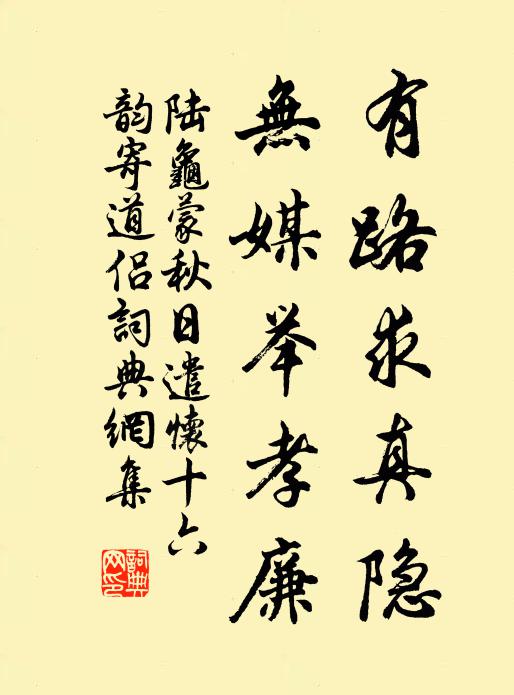 有路求真隐
無媒举孝廉
陆龜蒙秋日遣懷十六
韵寄道侣詞典網集
詞典网印